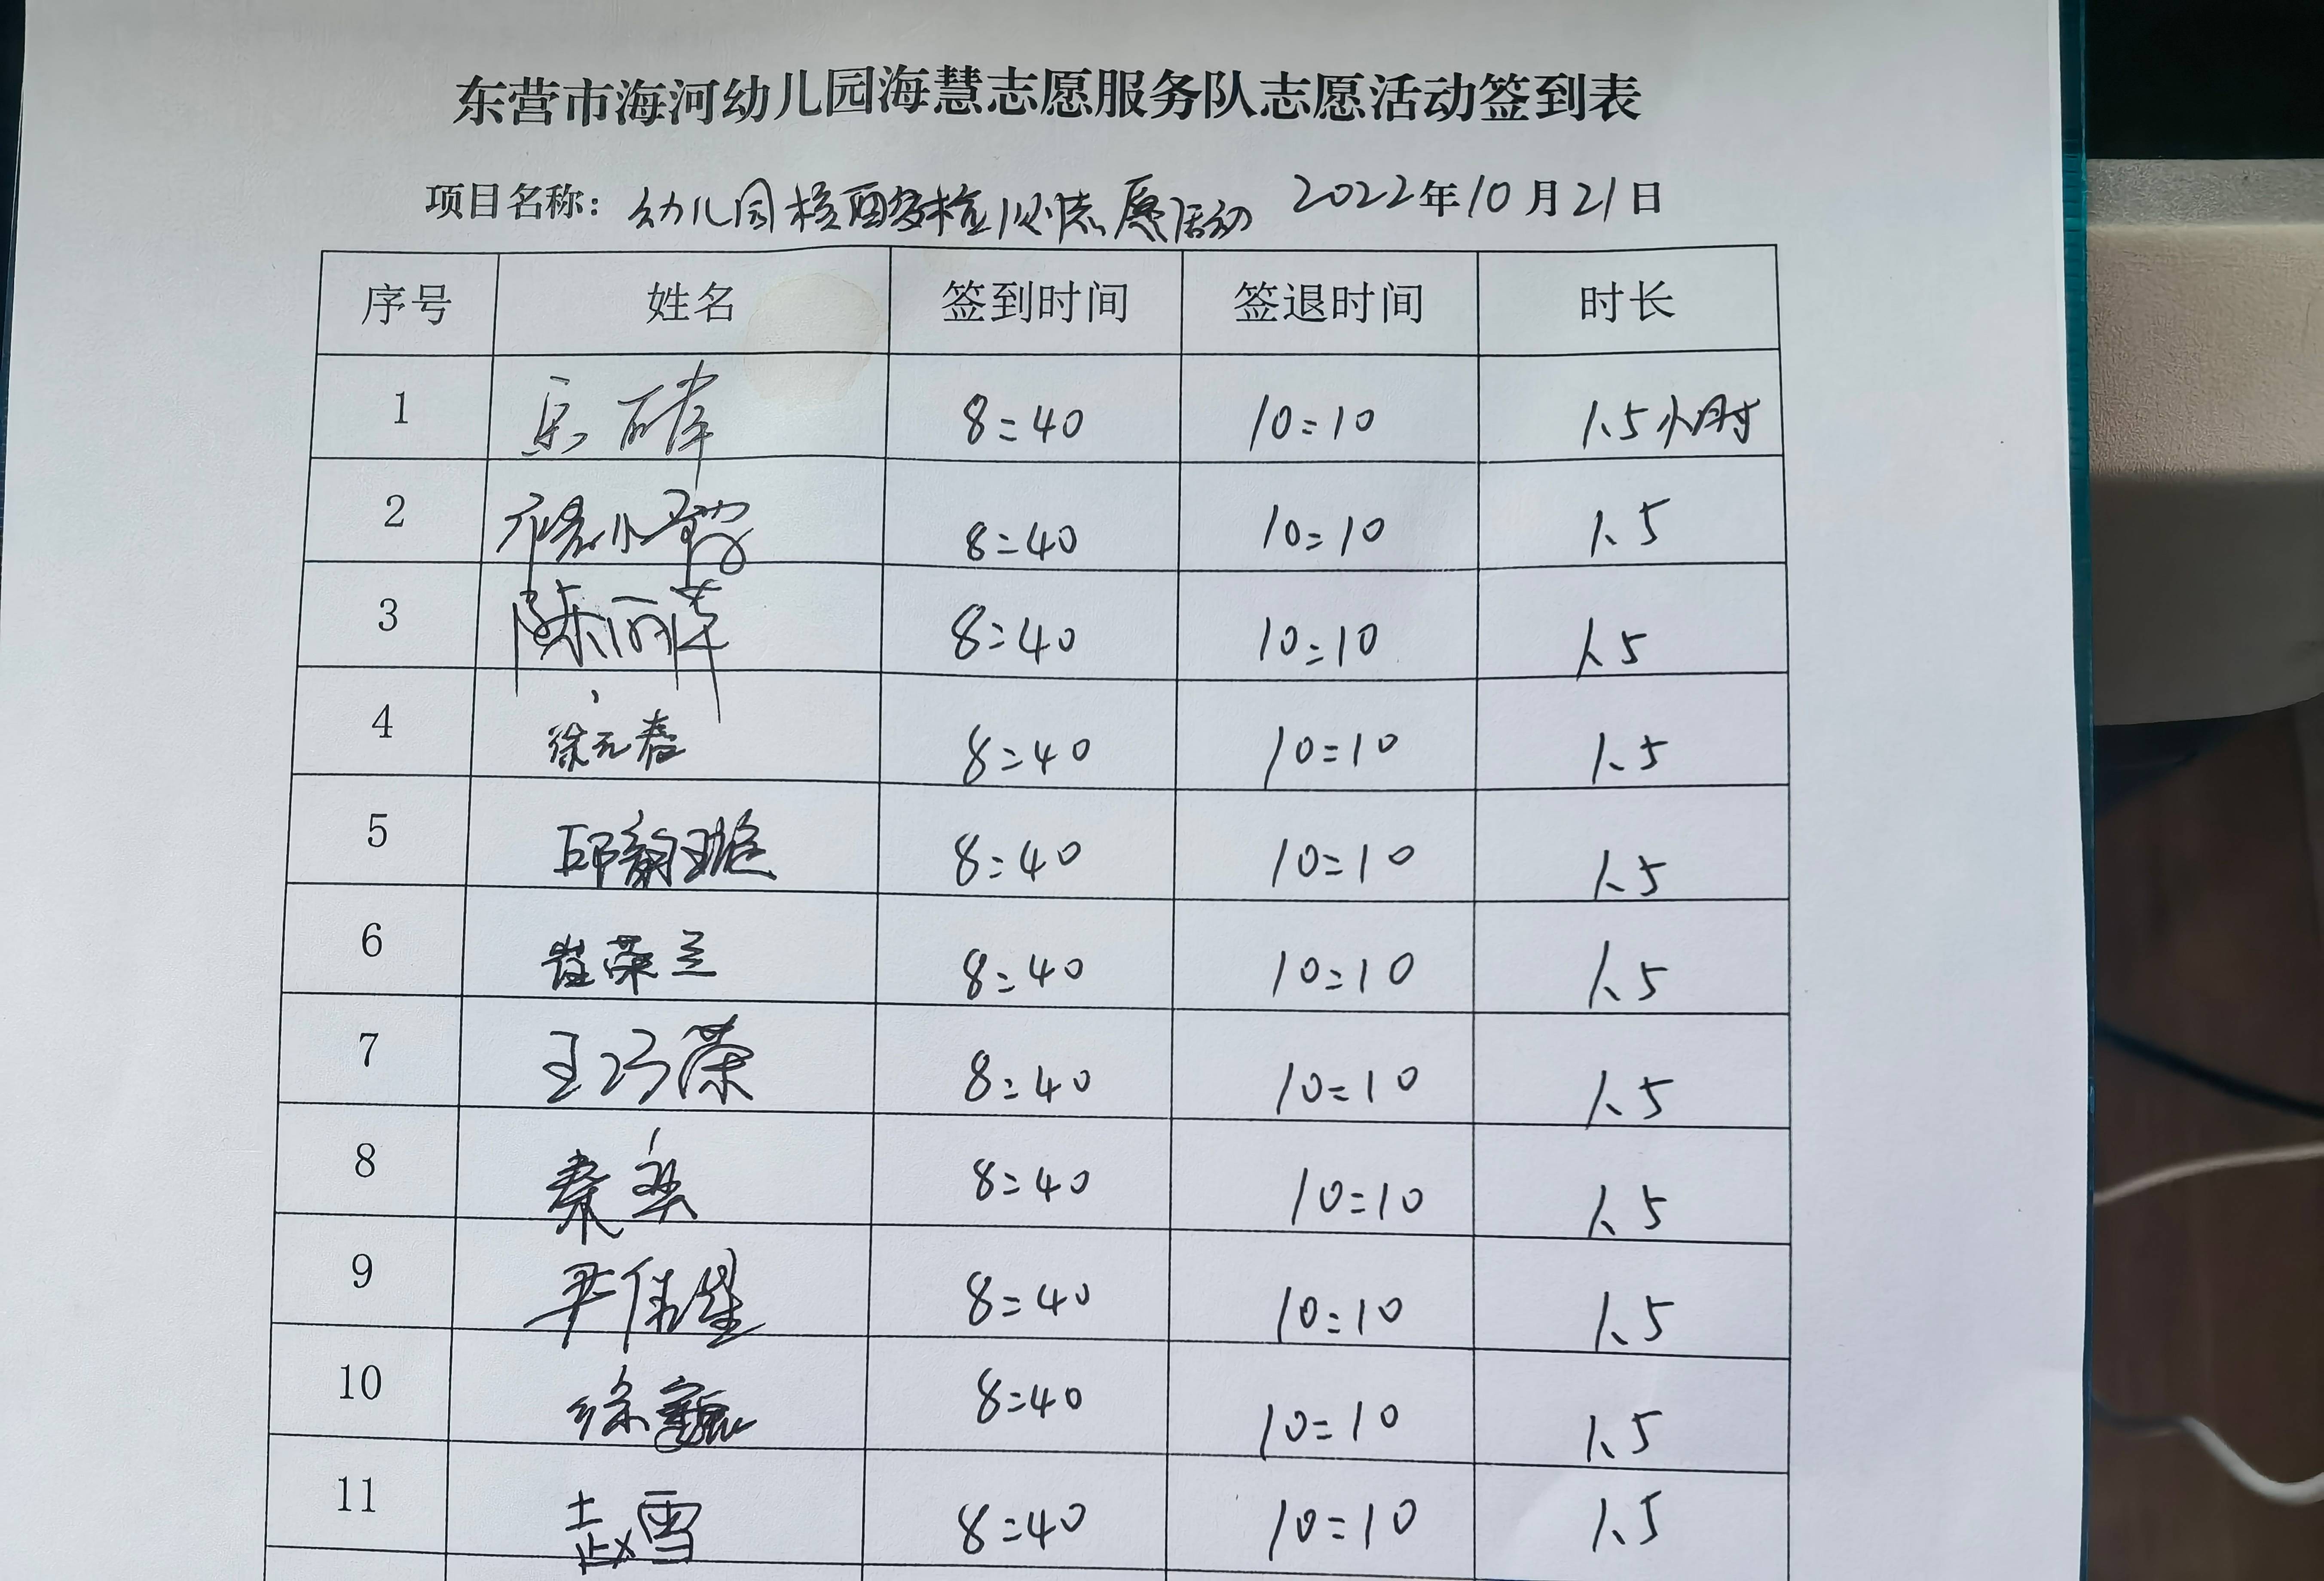 东营市海河幼儿园海慧志愿服务队志愿活动签到表
项目名称：幼儿园核酸检测志愿活动 2022年10月21日
序号 姓名 签到时间 签退时间 时长
1 8:40 10:10 1.5小时
2 8:40 10:10 1.5
3 陈丽萍 8:40 10:10 1.5
4 徐元春 8:40 10:10 1.5
5 邱 8:40 10:10 1.5
6 崔荣兰 8:40 10:10 1.5
7 王巧荣 8:40 10:10 1.5
8 秦 8:40 10:10 1.5
9 尹伟 8:40 10:10 1.5
10 徐 8:40 10:10 1.5
11 赵雪 8:40 10:10 1.5